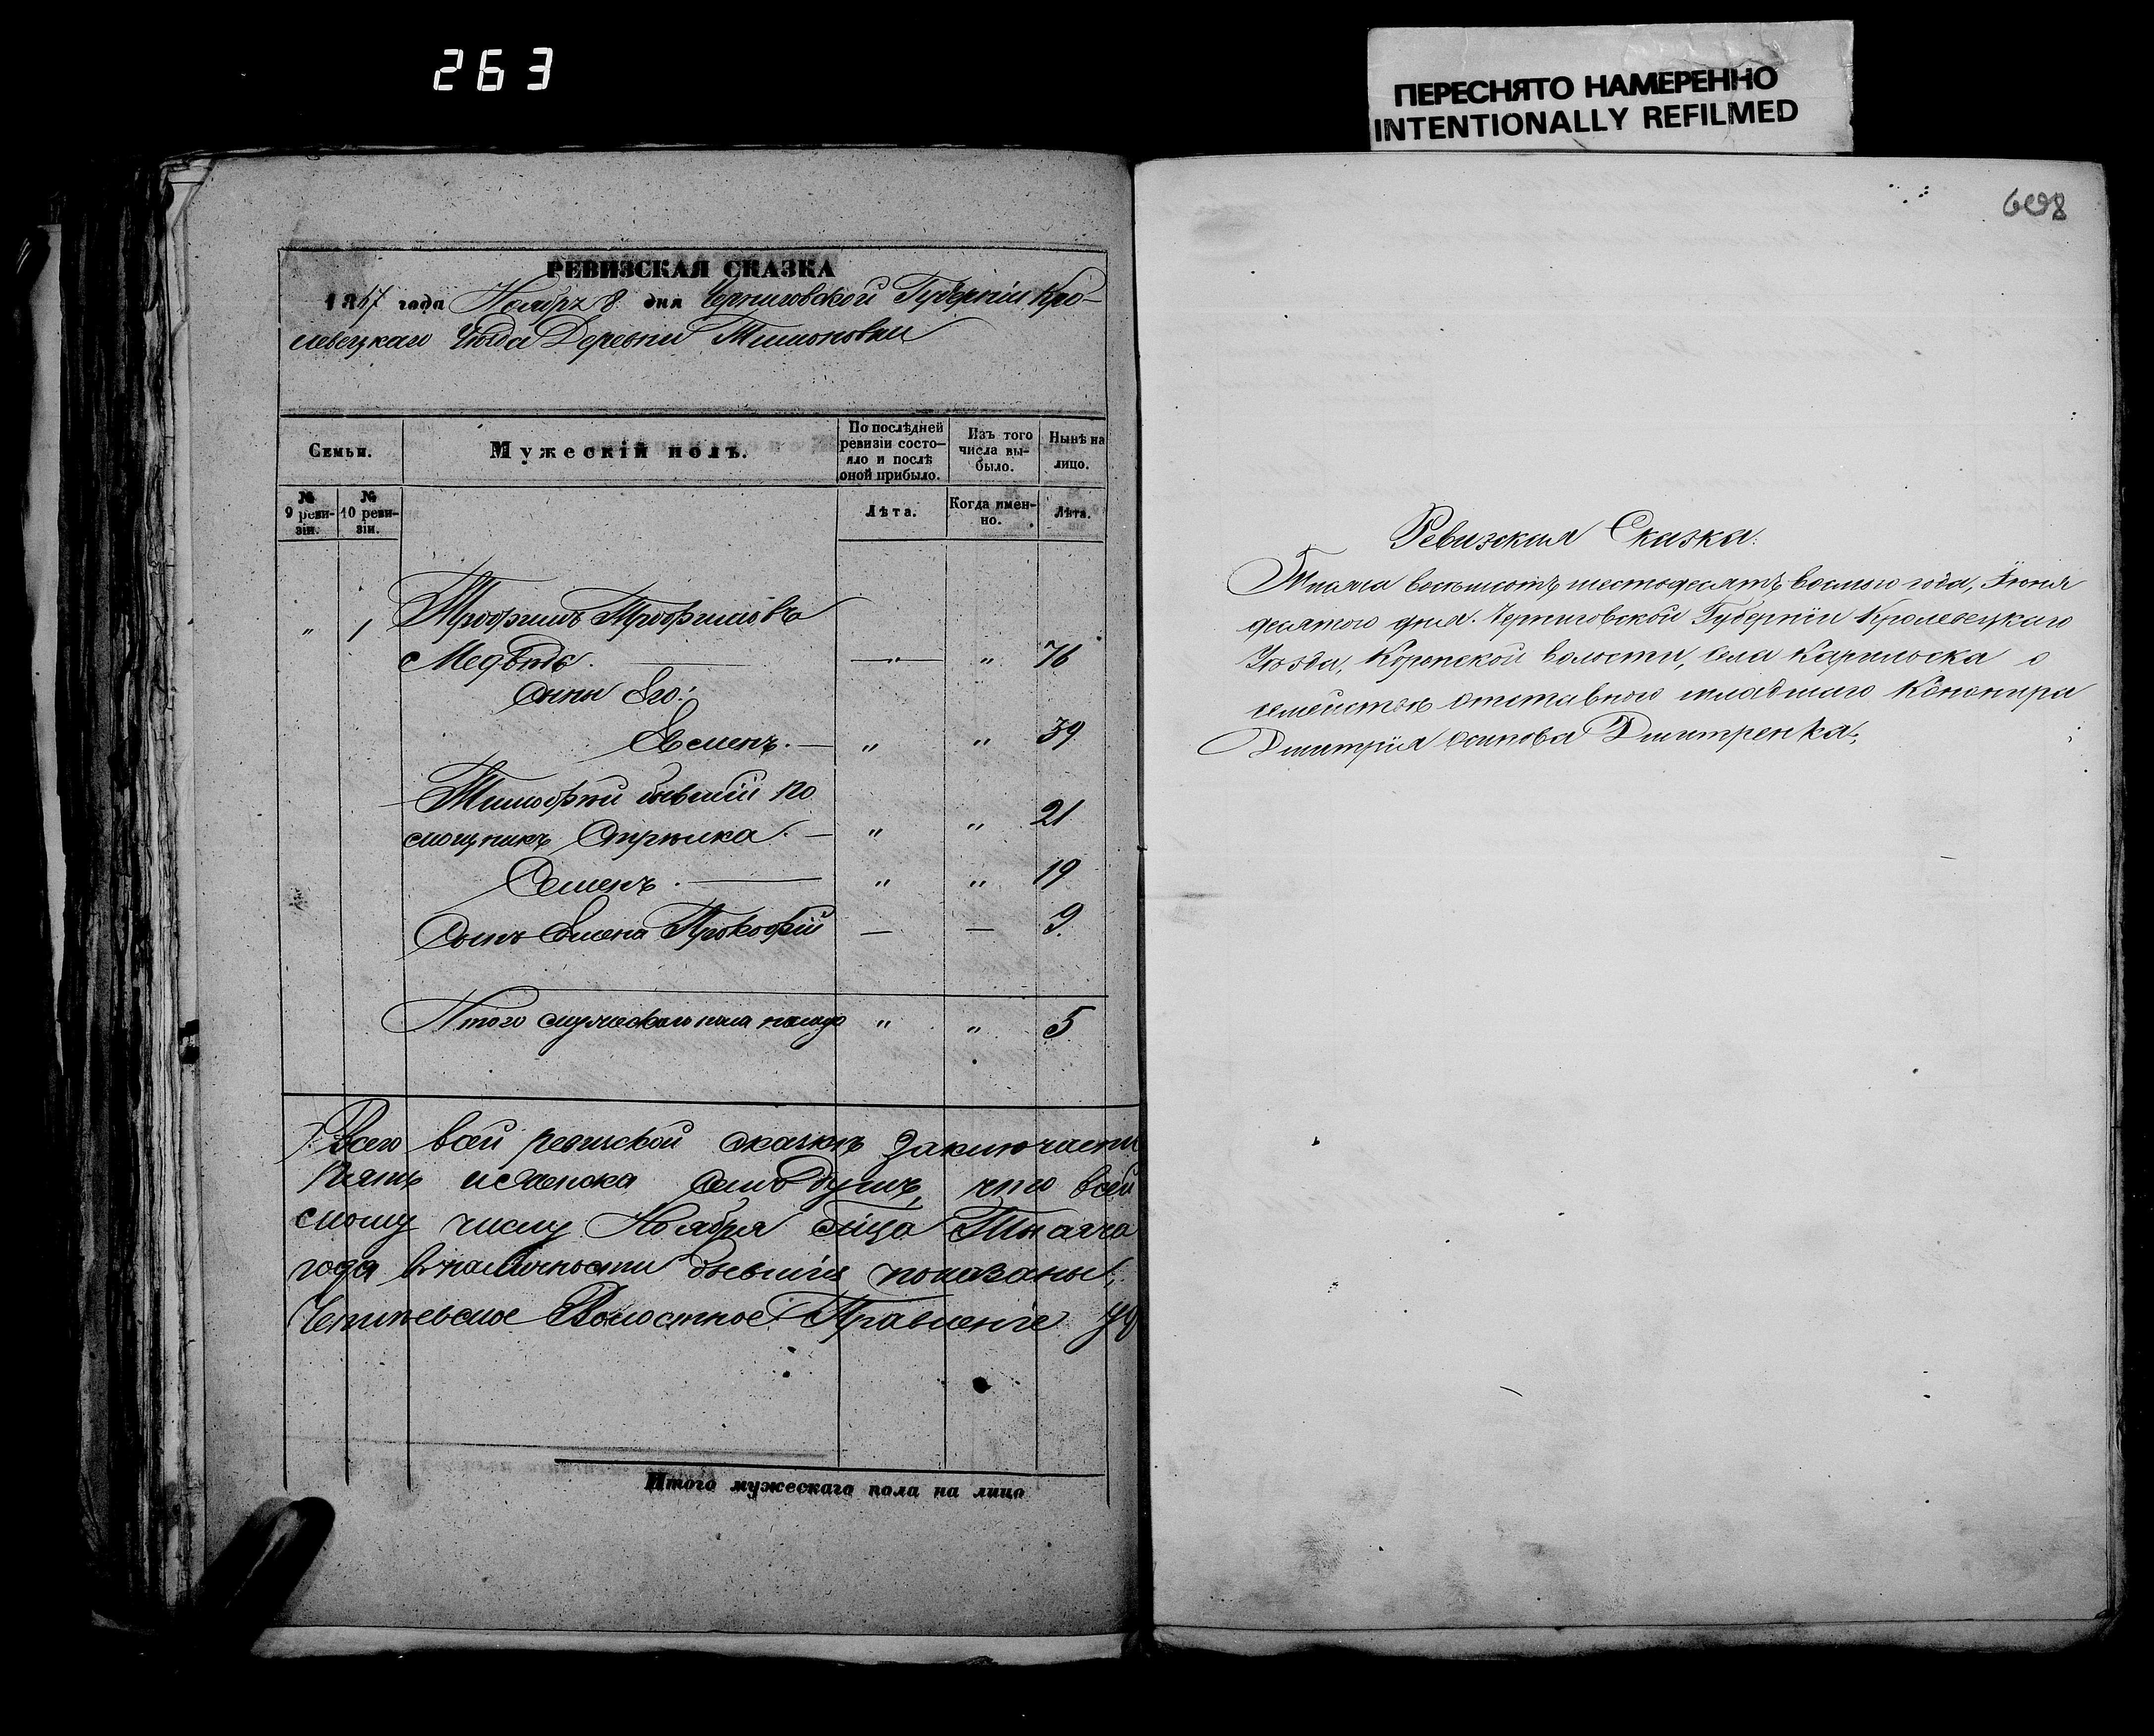 263
ПЕРЕСНЯТО НАМЕРЕННО
INTENTIONALLY REFILMED
РЕВИЗСКАЯ СКАЗКА
1867 года Ноября 8 дня Черниговской Губерніи Кро-
левецкаго Уѣзда Деревни Тимоновки
Семьи.
Мужескій полъ.
По послѣдней ревизіи состо-
яло и послѣ
оной прибыло.
Изъ того
числа вы-
было.
Нынѣ на
лицо.
№
9 реви-
зіи.
№
10 реви-
зіи.
Лѣта.
Когда имен-
но.
Лѣта.
" 1 Трофимъ Трофимовъ
Медѣдь. — " — " 76
Сыны Его:
— " " 39
Тимофей бывшій по
мощникъ — " " 21
Семенъ. — " " 19
Сынъ Прокофій — — 9.
Итого мужескаго пола налицо " " 5
Всего всей ревиской сказкѣ заключаетъ
пять душъ, что
смому числу Ноября
года в наличности показаны,
Волостное Правленіе
Итого мужескаго пола на лицо
608
Ревизская Сказка:
Тысяча восьмсотъ шестьдесятъ восьмого года, Іюня
десятого дня. Черниговской Губерніи Кролевецкаго
Уѣзда, Коропской волости, Села Карильска о
семействѣ отставного младшаго Канонира
Дмитрія Осипова Дмитренка;